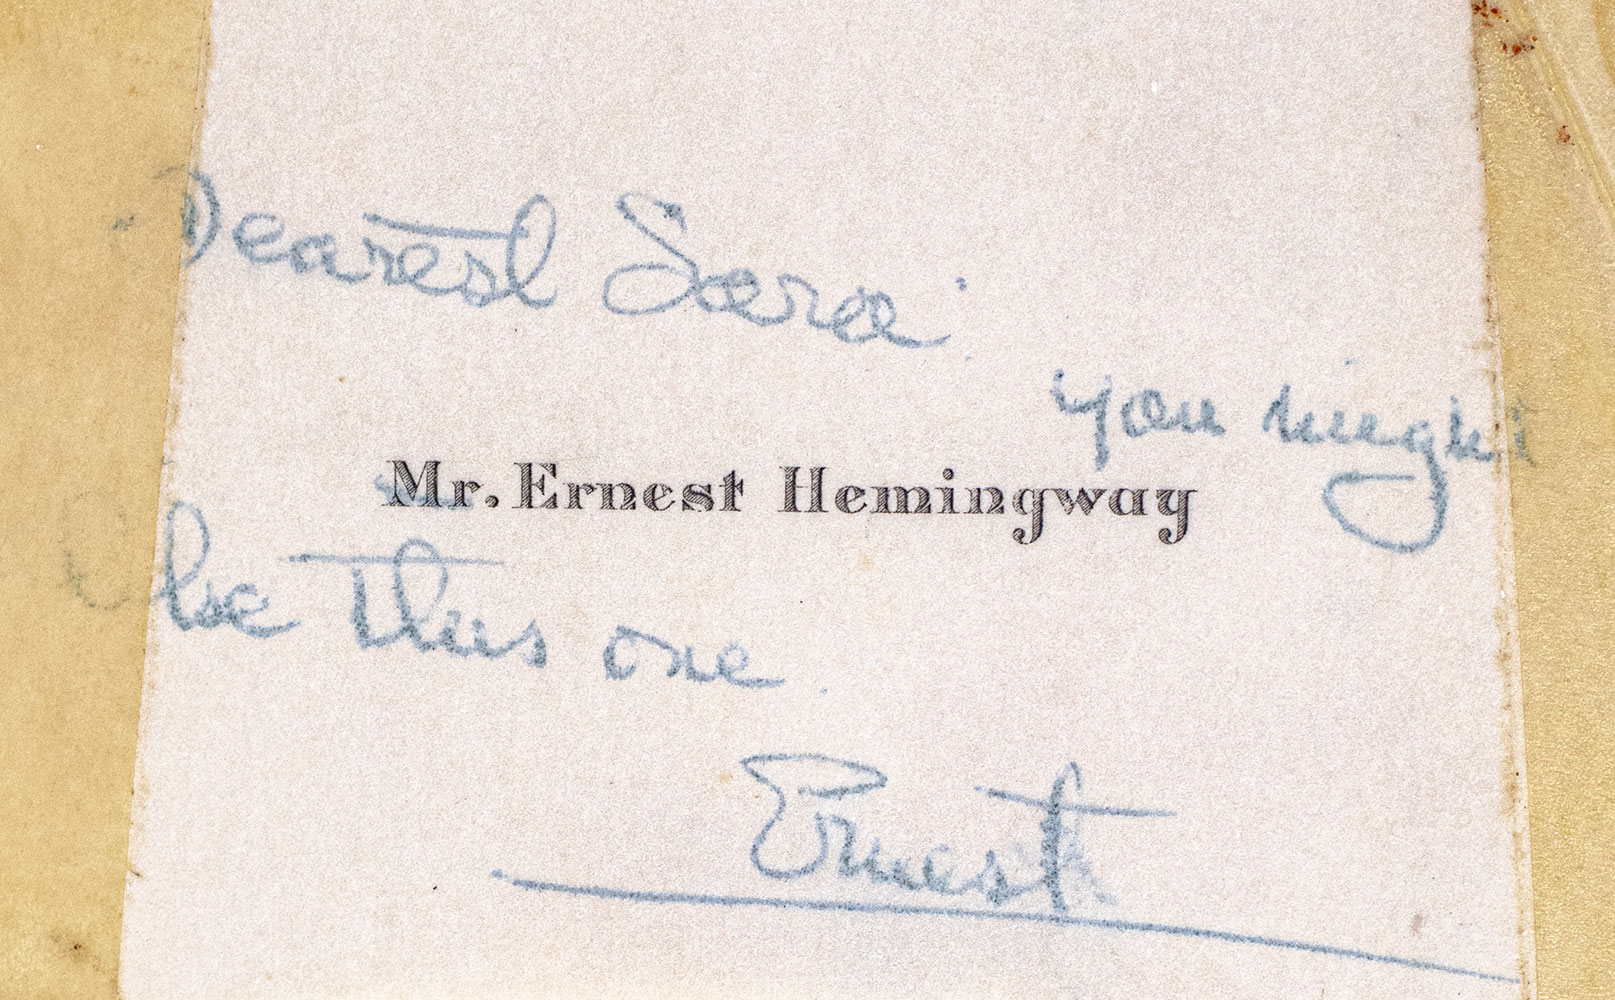 Dearest Sara:
you might
Mr. Ernest Hemingway
Use this one.
Ernest